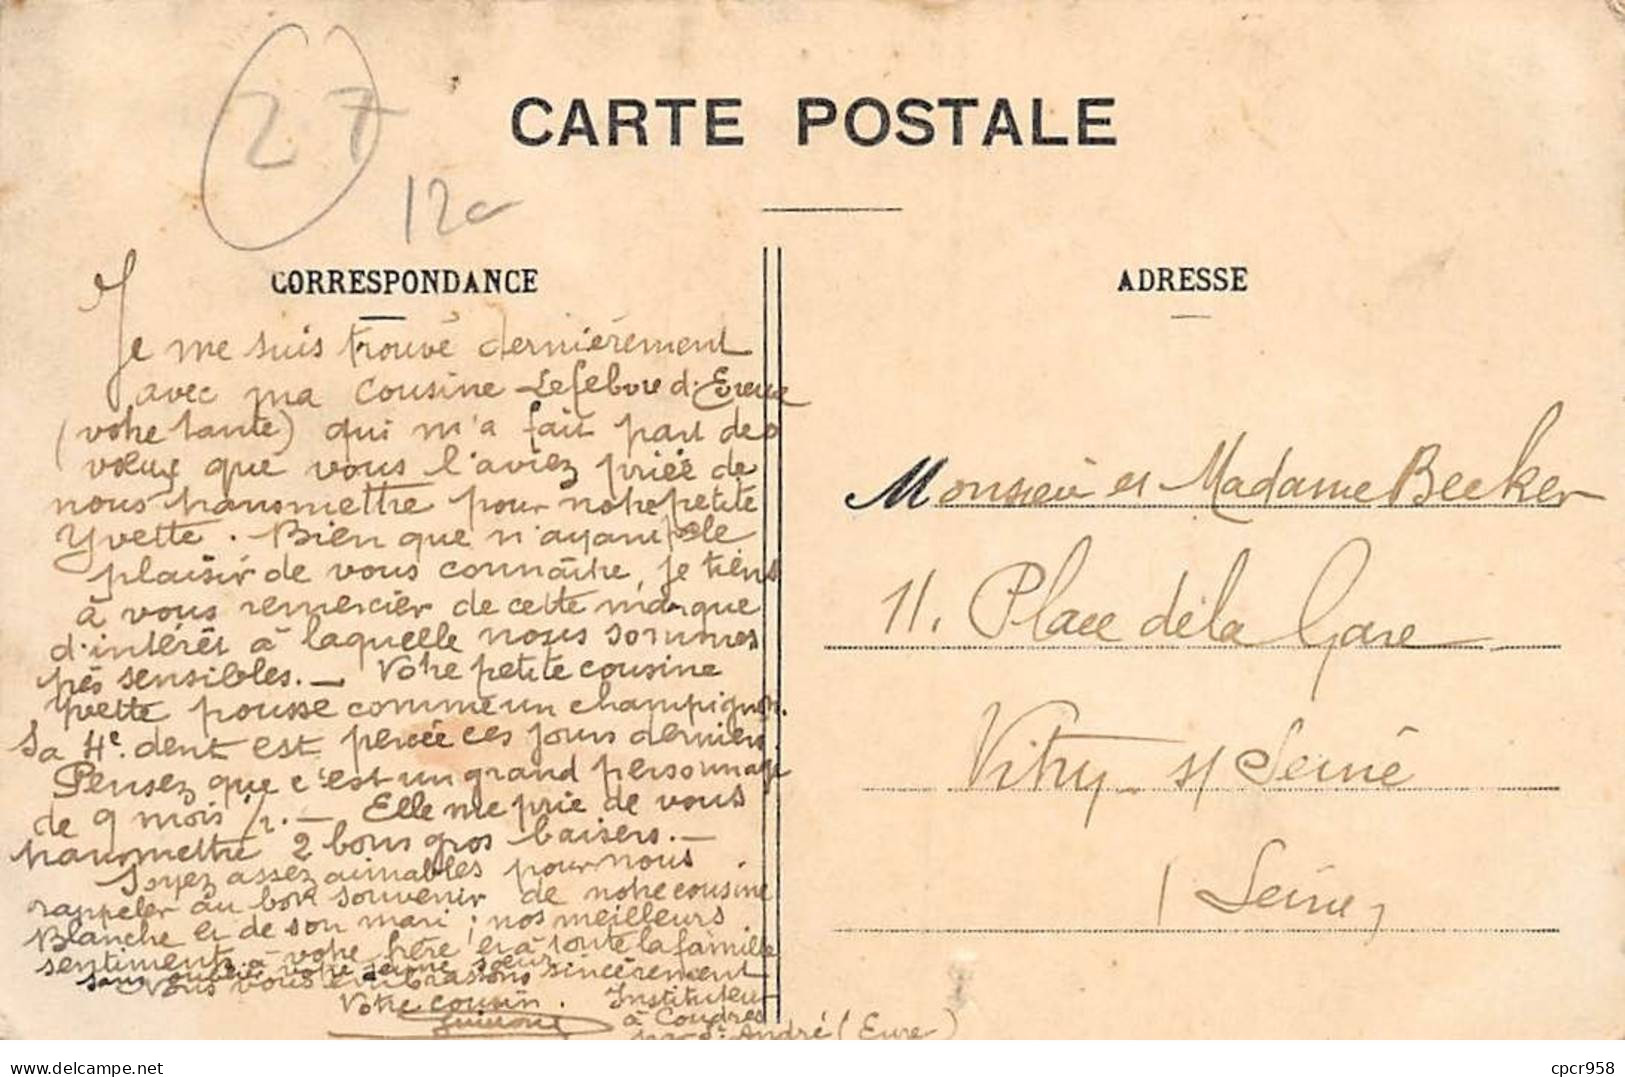 27
12
CARTE POSTALE
CORRESPONDANCE
Je me suis trouvé dernièrement
avec ma cousine Lefebvre d'
(votre tante) qui m'a fait part des
vœux que vous l'aviez priée de
nous transmettre pour notre petite
Yvette. Bien que n'ayant pas le
plaisir de vous connaître, je tiens
à vous remercier de cette marque
d'intérêt à laquelle nous sommes
très sensibles. — Votre petite cousine
Yvette pousse comme un champignon.
Sa 4e. dent est percée ces jours derniers.
Pensez que c'est un grand personnage
de 9 mois 1/2. — Elle me prie de vous
transmettre 2 bons gros baisers. —
Soyez assez aimables pour nous
rappeler au bon souvenir de notre cousine
Blanche et de son mari ; nos meilleurs
sentiments à votre père et à toute la famille
sans oublier votre jeune sœur
Nous vous embrassons sincèrement
Votre cousin.
Instituteur
à Coudres
par St. André (Eure)
ADRESSE
Monsieur et Madame Becker
11. Place de la Gare
Vitry s/ Seine
(Seine)
delcampe.net
cpcr958